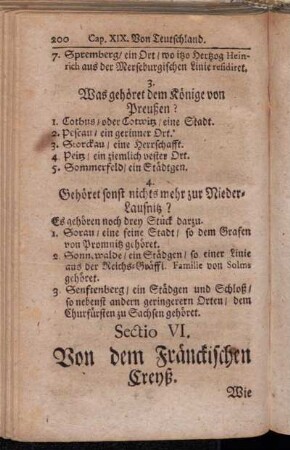 200 Cap. XIX. Von Teutschland.
7. Spremberg/ ein Ort/ wo itzo Hertzog Hein-
rich aus der Merseburgischen Linie residiret.
3.
Was gehöret dem Könige von
Preußen?
1. Cotbus/ oder Cotwitz/ eine Stadt.
2. Peseau/ ein geringer Ort.
3. Storckau/ eine Herrschafft.
4. Peitz/ ein ziemlich vester Ort.
5. Sommerfeld/ ein Städtgen.
4.
Gehöret sonst nichts mehr zur Nieder-
Lausnitz?
Es gehören noch drey Stück darzu.
1. Sorau/ eine feine Stadt/ so dem Grafen
von Promnitz gehöret.
2. Sonnewalde/ ein Städgen/ so einer Linie
aus der Reichs-Gräffl. Familie von Solms
gehöret.
3. Senftenberg/ ein Städgen und Schloß/
so nebenst andern geringerern Orten/ dem
Churfürsten zu Sachsen gehöret.
Sectio VI.
Von dem Fränckischen
Creyß.
Wie